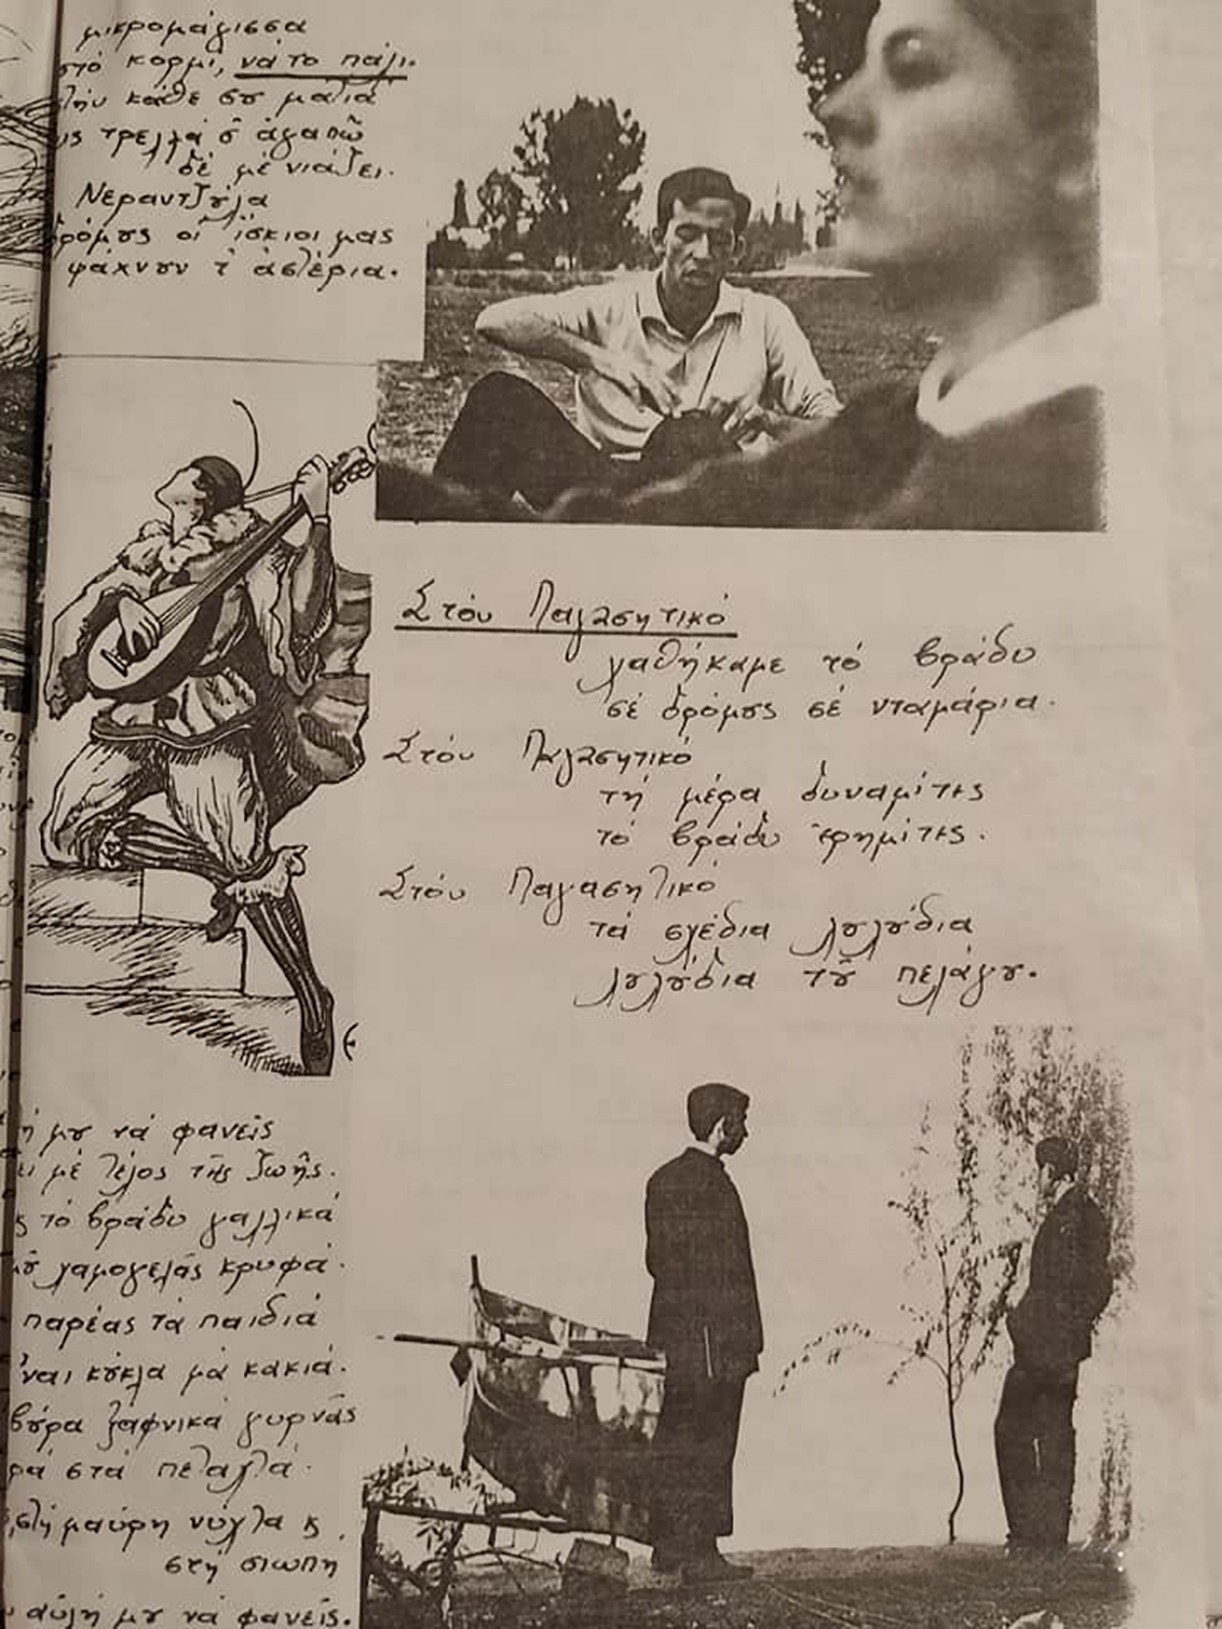 μικρομάγισσα
στό κορμί, νά το πάλι.
κάθε σου ματιά
τρελλά σ' ἀγαπῶ
δέ μέ νιάζει.
Νεραντζούλα
δρόμους οἱ ἴσκιοι μας
ψάχνουν τ' ἀστέρια.
Στόν Παγασητικό
χαθήκαμε τό βράδυ
σέ δρόμους σέ νταμάρια.
Στόν Παγασητικό
τή μέρα δυναμίτης
τό βράδυ ἐρημίτης.
Στόν Παγασητικό
τά σχέδια λουλούδια
λουλούδια τοῦ πελάγου.
μου νά φανεῖς
μέ τέλος τῆς ζωῆς.
τό βράδυ γαλλικά
χαμογελᾶς κρυφά.
παρέας τά παιδιά
κούκλα μά κακιά.
ξαφνικά γυρνᾶς
στά πεταχτά.
στή μαύρη νύχτα κ
στή σιωπη
αὐλή μου νά φανεῖς.